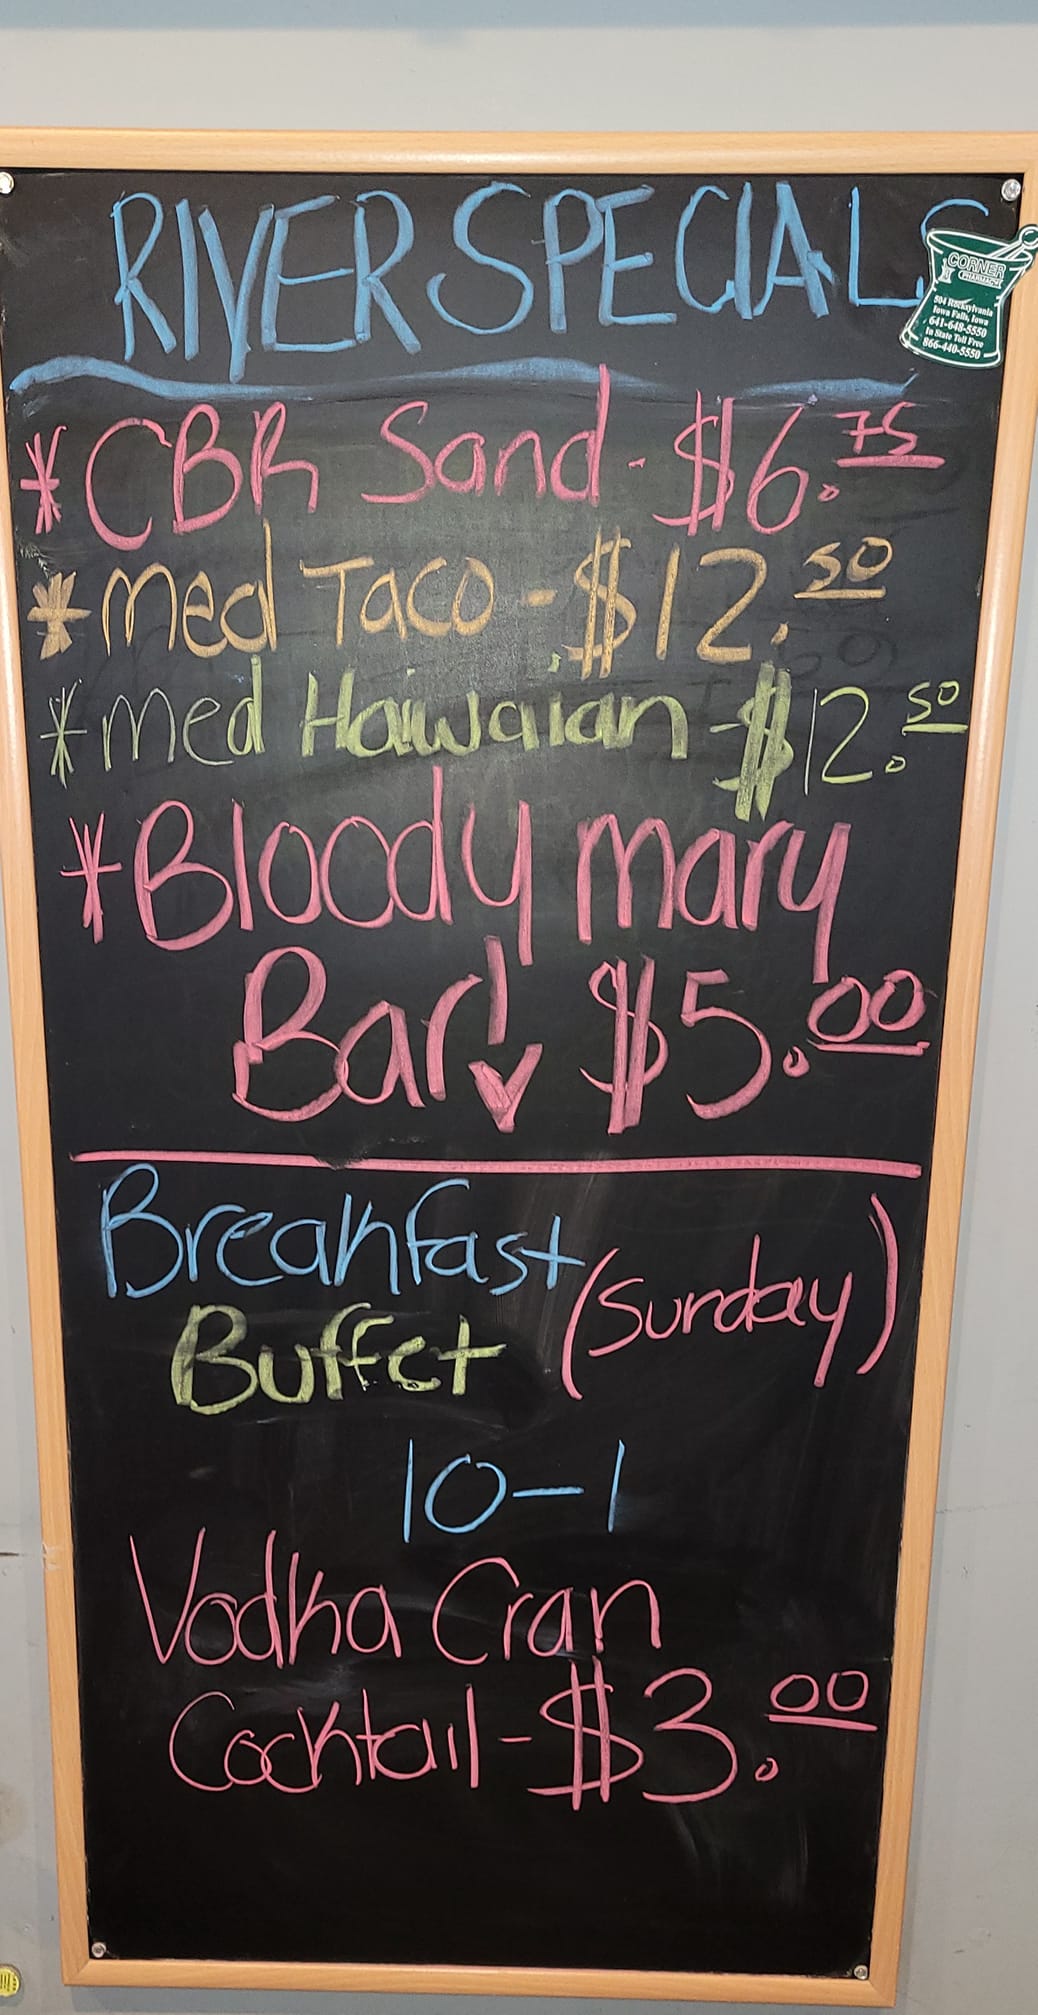 RIVER SPECIALS
* CBR Sand - $6.75
* Med Taco - $12.50
* Med Haiwaiian - $12.50
* Bloody Mary
Bar $5.00
Breakfast
(Sunday)
Buffet
10-1
Vodka Cran
Cocktail - $3.00
CORNER
PHARMACY
504 Rocksylvania
Iowa Falls, Iowa
641-648-5550
In State Toll Free
866-440-5550